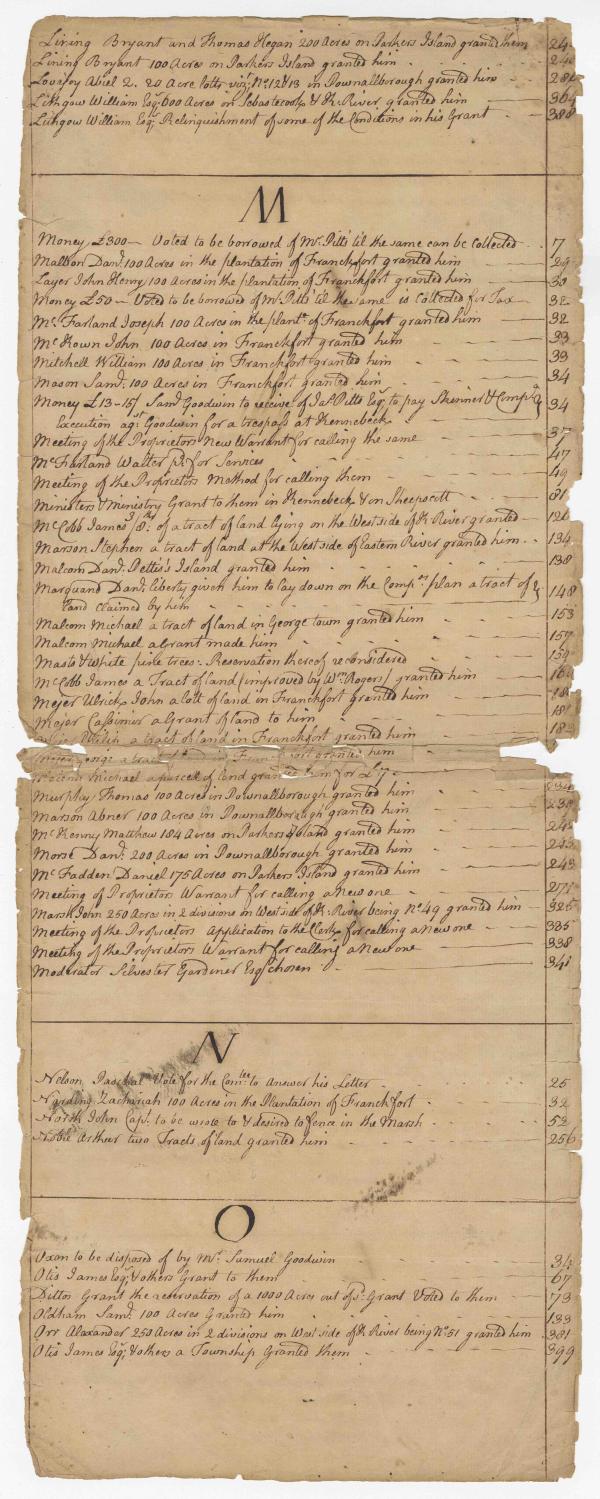 Lining Bryant and Thomas Hegan 200 Acres on Parkers Island granted them 24
Lining Bryant 100 Acres on Parkers Island granted him 240
Lovejoy Abiel 2. 20 Acre lotts viz. No. 12 & 13 in Pownallborough granted him 28
Lithgow William Esqr. 600 Acres on Sebastecook & K. River granted him 364
Lithgow William Esqr. Relinquishment of some of the Conditions in his Grant 388
M
Money £300 — Voted to be borrowed of Mr. Pitts til the same can be Collected 7
Maltson Danl. 100 Acres in the plantation of Franckfort granted him 29
Layer John Henry 100 Acres in the plantation of Franckfort granted him 30
Money £50 — Voted to be borrowed of Mr. Pitts til the same is Collected for Tax 32
Mc. Farland Joseph 100 Acres in the plantn. of Franckfort granted him 32
Mc Kown John 100 Acres in Franckfort granted him 33
Mitchell William 100 Acres in Franckfort granted him 33
Mason Saml. 100 Acres in Franckfort granted him 34
Money £13-15/ Saml. Goodwin to receive of Jas. Pitts Esqr. to pay Skinner & Compa. 34
Execution agt. Goodwin for a trespass at Kennebeck
Meeting of the Proprietors New Warrant for calling the same 37
Mc Farland Walter pd. for Services 47
Meeting of the Proprietors Method for calling them 49
Ministers & Ministry Grant to them in Kennebeck & on Sheepscott 81
Mc Cobb James 1/8th. of a tract of land lying on the West side of K. River granted 126
Marson Stephen a tract of land at the West side of Eastern River granted him 134
Malcom Danl. Pettis's Island granted him 138
Marquand Danl. liberty given him to lay down on the Compns. plan a tract of 148
land claimed by him
Malcom Michael a tract of land in George town granted him 153
Malcom Michael a Grant made him 157
Masts & White pine trees. Reservation thereof reconsidered 159
Mc Cobb James a Tract of land (improved by Wm. Rogers) granted him 16
Meyer Ulrich John a lott of land in Franckfort granted him 18
Mayer Cassimir a Grant of land to him 18
Philip a tract of land in Franckfort granted him 18
Meyer George a tract of land in Franckfort granted him
Michael a parcell of land granted him for £7
Murphy Thomas 100 Acres in Pownallborough granted him 234
Marson Abner 100 Acres in Pownallborough granted him 238
Mc Kenny Matthew 184 Acres on Parkers Island granted him 242
Morse Danl. 200 Acres in Pownallborough granted him 243
Mc Fadden Daniel 175 Acres on Parkers Island granted him 243
Meeting of Proprietors Warrant for calling a New one 277
Marsh John 250 Acres in 2 divisions on West side of K. River being No. 49 granted him 325
Meeting of the Proprietors Application to the Clerk for calling a New one 335
Meeting of the Proprietors Warrant for calling a New one 338
Moderator Silvester Gardiner Esqr. chosen 341
N
Nelson Paschal Vote for the Comtee to answer his Letter 25
Narding Zachariah 100 Acres in the Plantation of Franckfort 32
North John Capt. to be wrote to & desired to fence in the Marsh 52
Noble Arthur two Tracts of land granted him 256
O
Oxen to be disposed of by Mr. Samuel Goodwin 34
Otis James Esqr. & others Grant to them 67
Dittos Grant the reservation of a 1000 Acres out of sd. Grant Voted to them 73
Oldham Saml. 100 Acres Granted him 133
Orr Alexander 250 Acres in 2 divisions on West side of K River being No. 51 granted him 381
Otis James Esqr. & others a Township Granted them 399